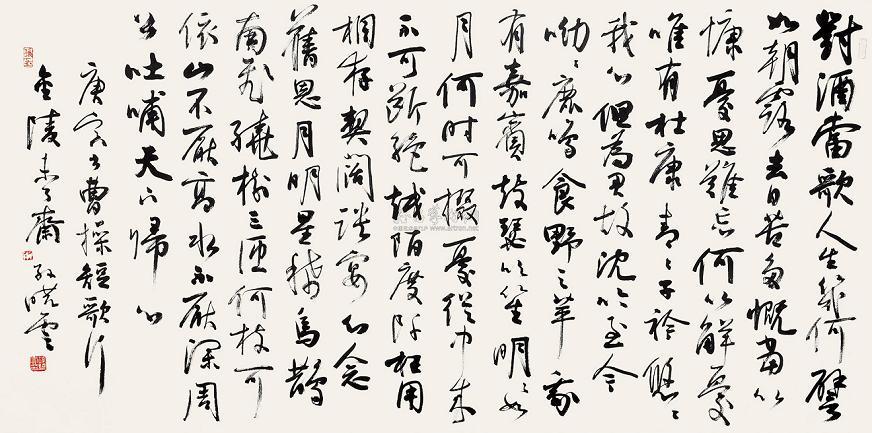 對酒當歌人生幾何譬
如朝露去日苦多慨當以
慷憂思難忘何以解憂
唯有杜康青〻子衿悠〻
我心但為君故沈吟至今
呦〻鹿鳴食野之苹我
有嘉賓鼓瑟吹笙明〻如
月何時可掇憂從中來
不可斷絕越陌度阡枉用
相存契闊談宴心念
舊恩月明星稀烏鵲
南飛繞樹三匝何枝可
依山不厭高水不厭深周
公吐哺天下歸心
庚寅書曹操短歌行
金陵未了齋孫曉雲